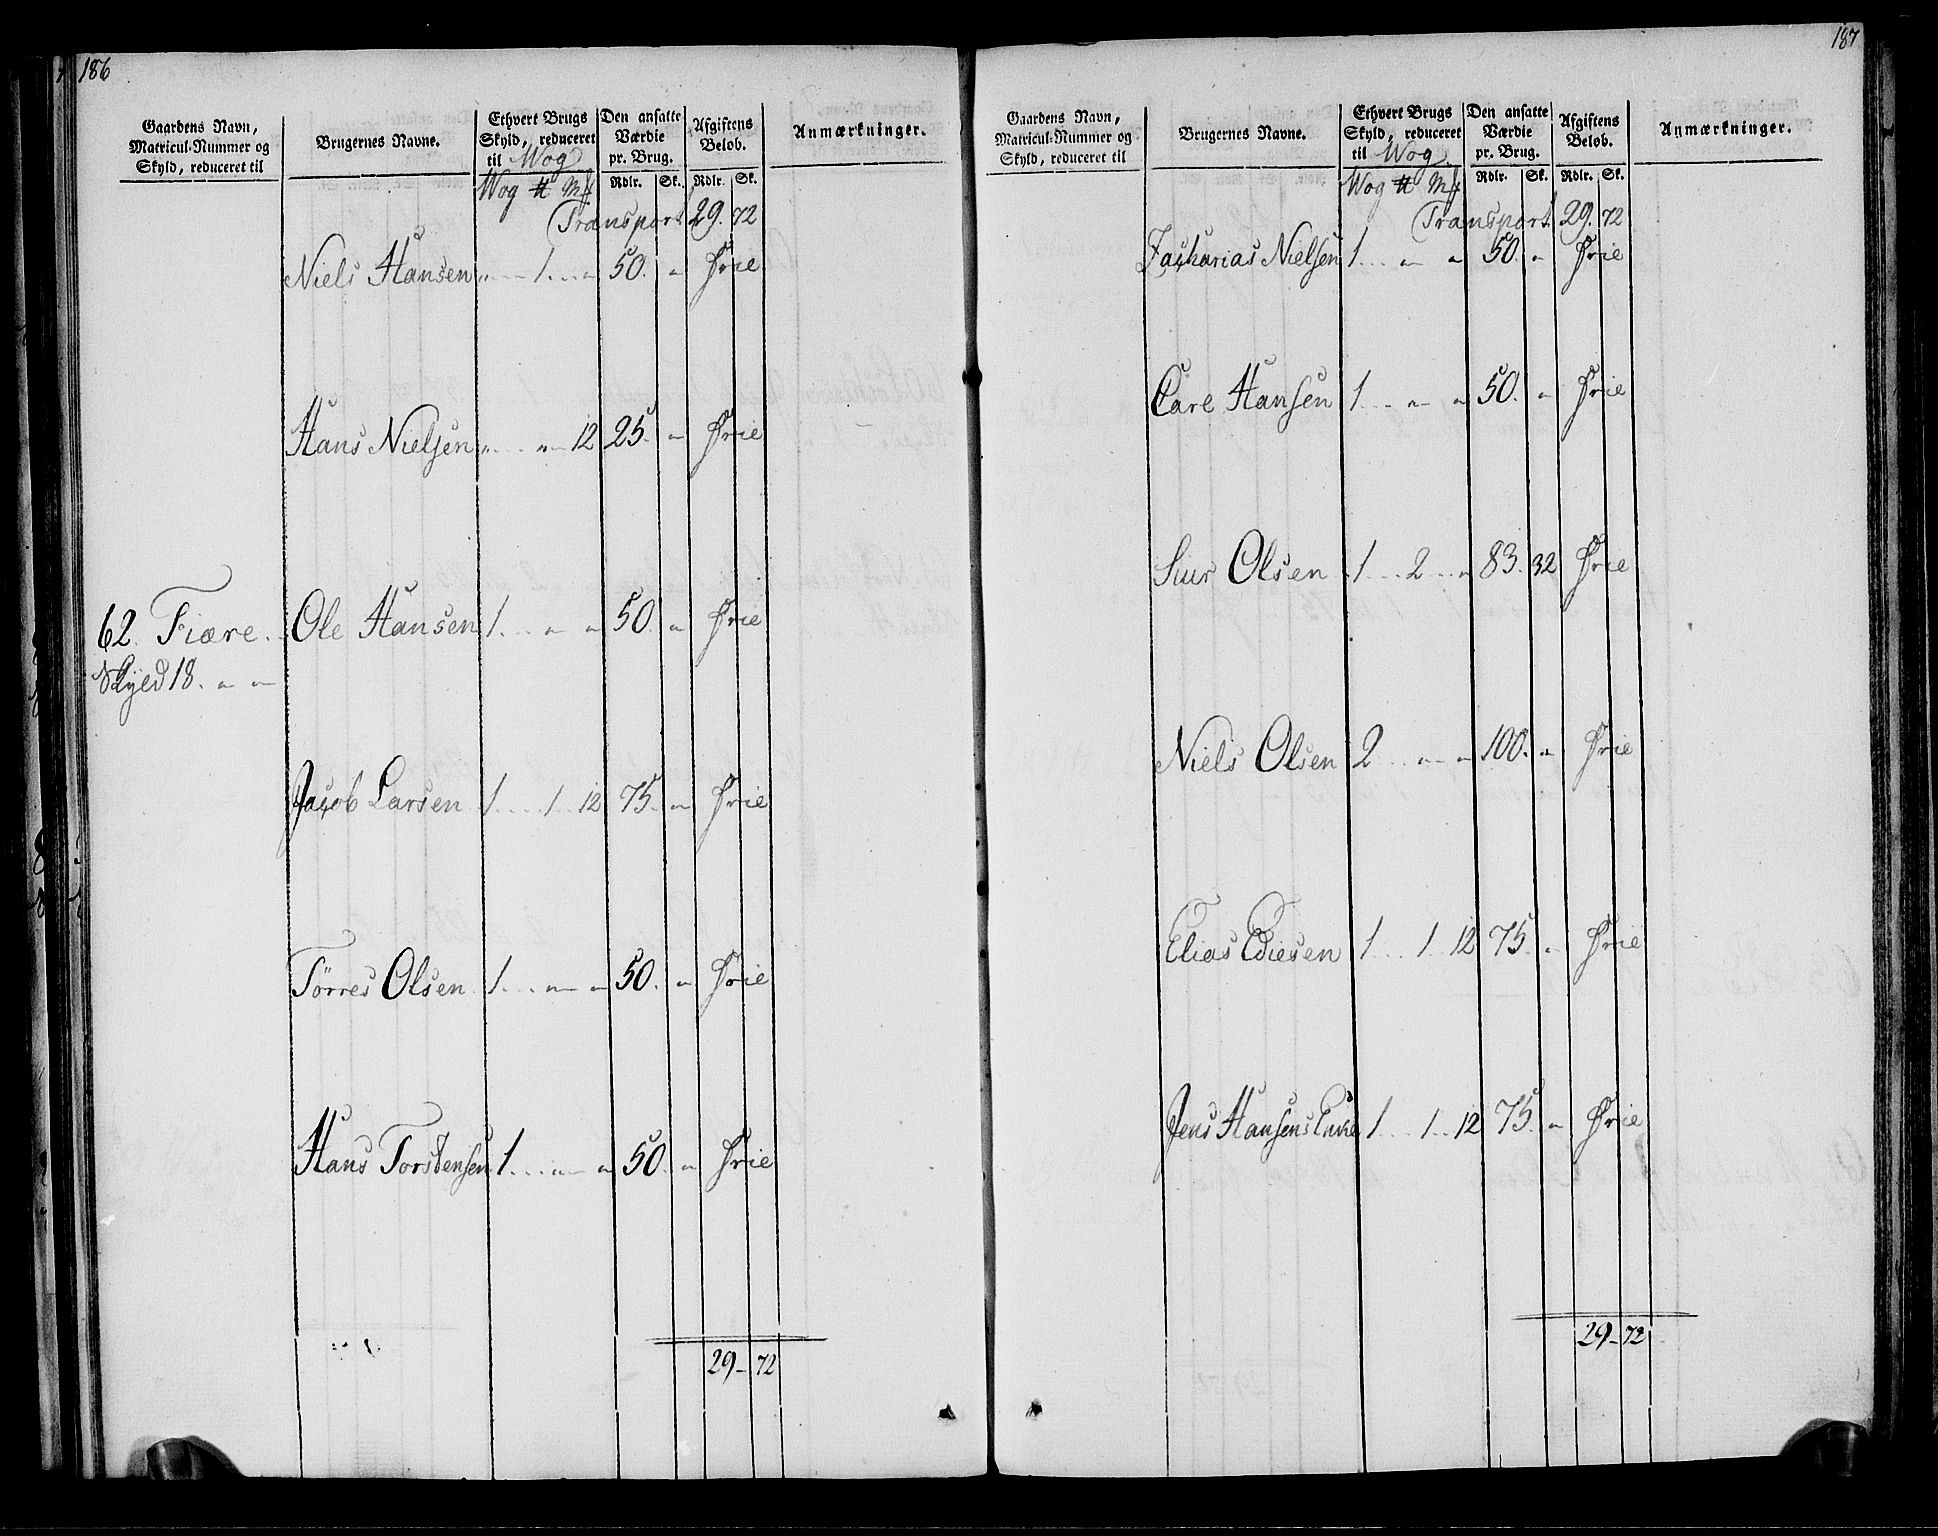 186
Gaardens Navn, Matricul-Nummer og Skyld, reduceret til
Brugernes Navne.
Ethvert Brugs Skyld, reduceret til Wog
Den ansatte Værdie pr. Brug.
Afgiftens Beløb.
Anmærkninger.
Wog ℔ Mk Rdlr. Sk. Rdlr. Sk.
Transport 29. 72
Niels Hansen „ 1 „ 50. „ Frie
Hans Nielsen „ „ 12 25. „ Frie
62. Fiære. Ole Hansen 1 „ „ 50. „ Frie
Skyld 18. „ „
Jacob Larsen 1 1 12 75. „ Frie
Tørres Olsen 1 „ „ 50. „ Frie
Hans Torstensen 1 „ „ 50. „ Frie
29 - 72
187
Gaardens Navn, Matricul-Nummer og Skyld, reduceret til
Brugernes Navne.
Ethvert Brugs Skyld, reduceret til Wog
Den ansatte Værdie pr. Brug.
Afgiftens Beløb.
Anmærkninger.
Wog ℔ Mk Rdlr. Sk. Rdlr. Sk.
Transport 29. 72
Zacharias Nielsen 1 „ „ 50. „ Frie
Care Hansen 1 „ „ 50. „ Frie
Siur Olsen 1 2 „ 83. 32 Frie
Niels Olsen 2 „ „ 100. „ Frie
Elias Ediesen 1 1 12 75. „ Frie
Jens Hansens Enke 1 1 12 75. „ Frie
29 - 72